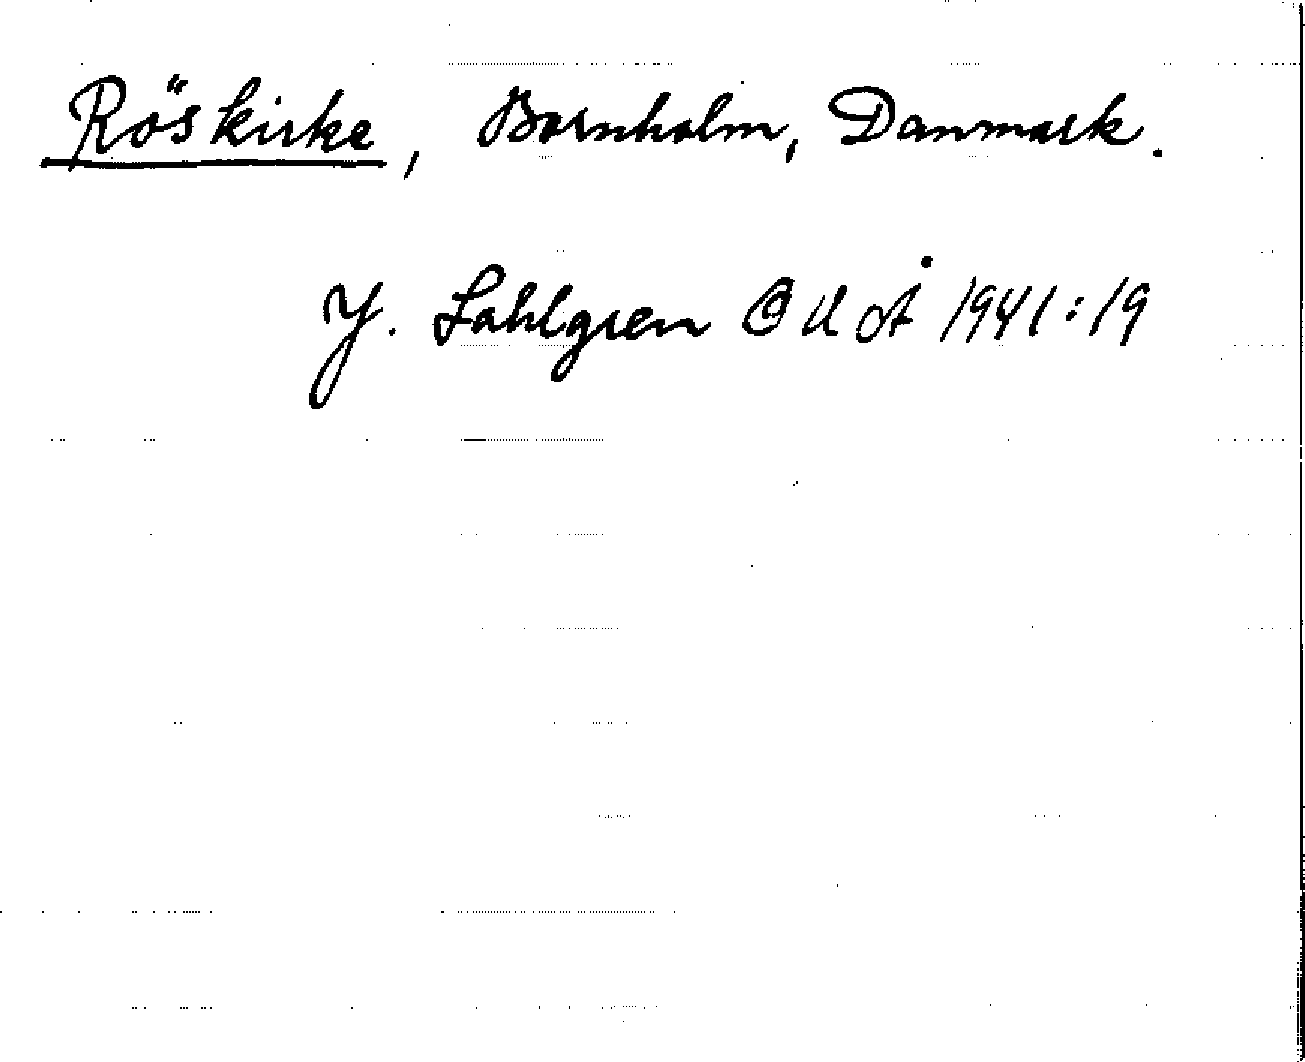 Röskirke, Bornholm, Danmark.
J. Sahlgren OUoÅ 1941:19